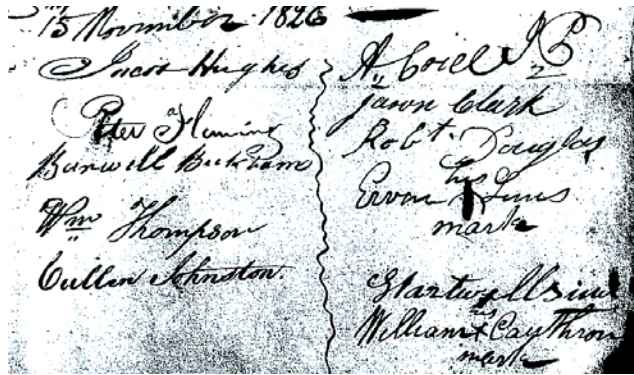 15 November 1826
Jacob Hughes
Peter Fleming
Burwell Beckham
Wm Thompson
Cullen Johnston
A,, Coiel J P
Jason Clark
Robt. Douglas
his
Ervon
mark
Hartwell
his
William X Caythron
mark